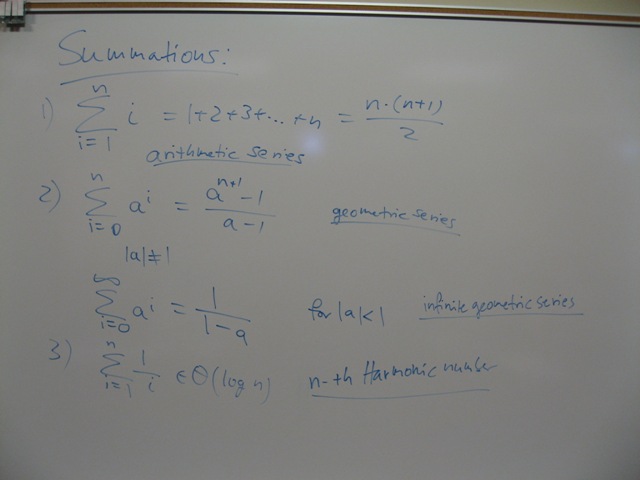 Summations:
1) ∑_{i=1}^{n} i = 1+2+3+... +n = n·(n+1) / 2
arithmetic series
2) ∑_{i=0}^{n} a^i = a^{n+1} -1 / a-1 geometric series
|a|≠1
∑_{i=0}^{∞} a^i = 1 / 1-a for |a|<1 infinite geometric series
3) ∑_{i=1}^{n} 1/i ∈ Θ(log n) n-th Harmonic number